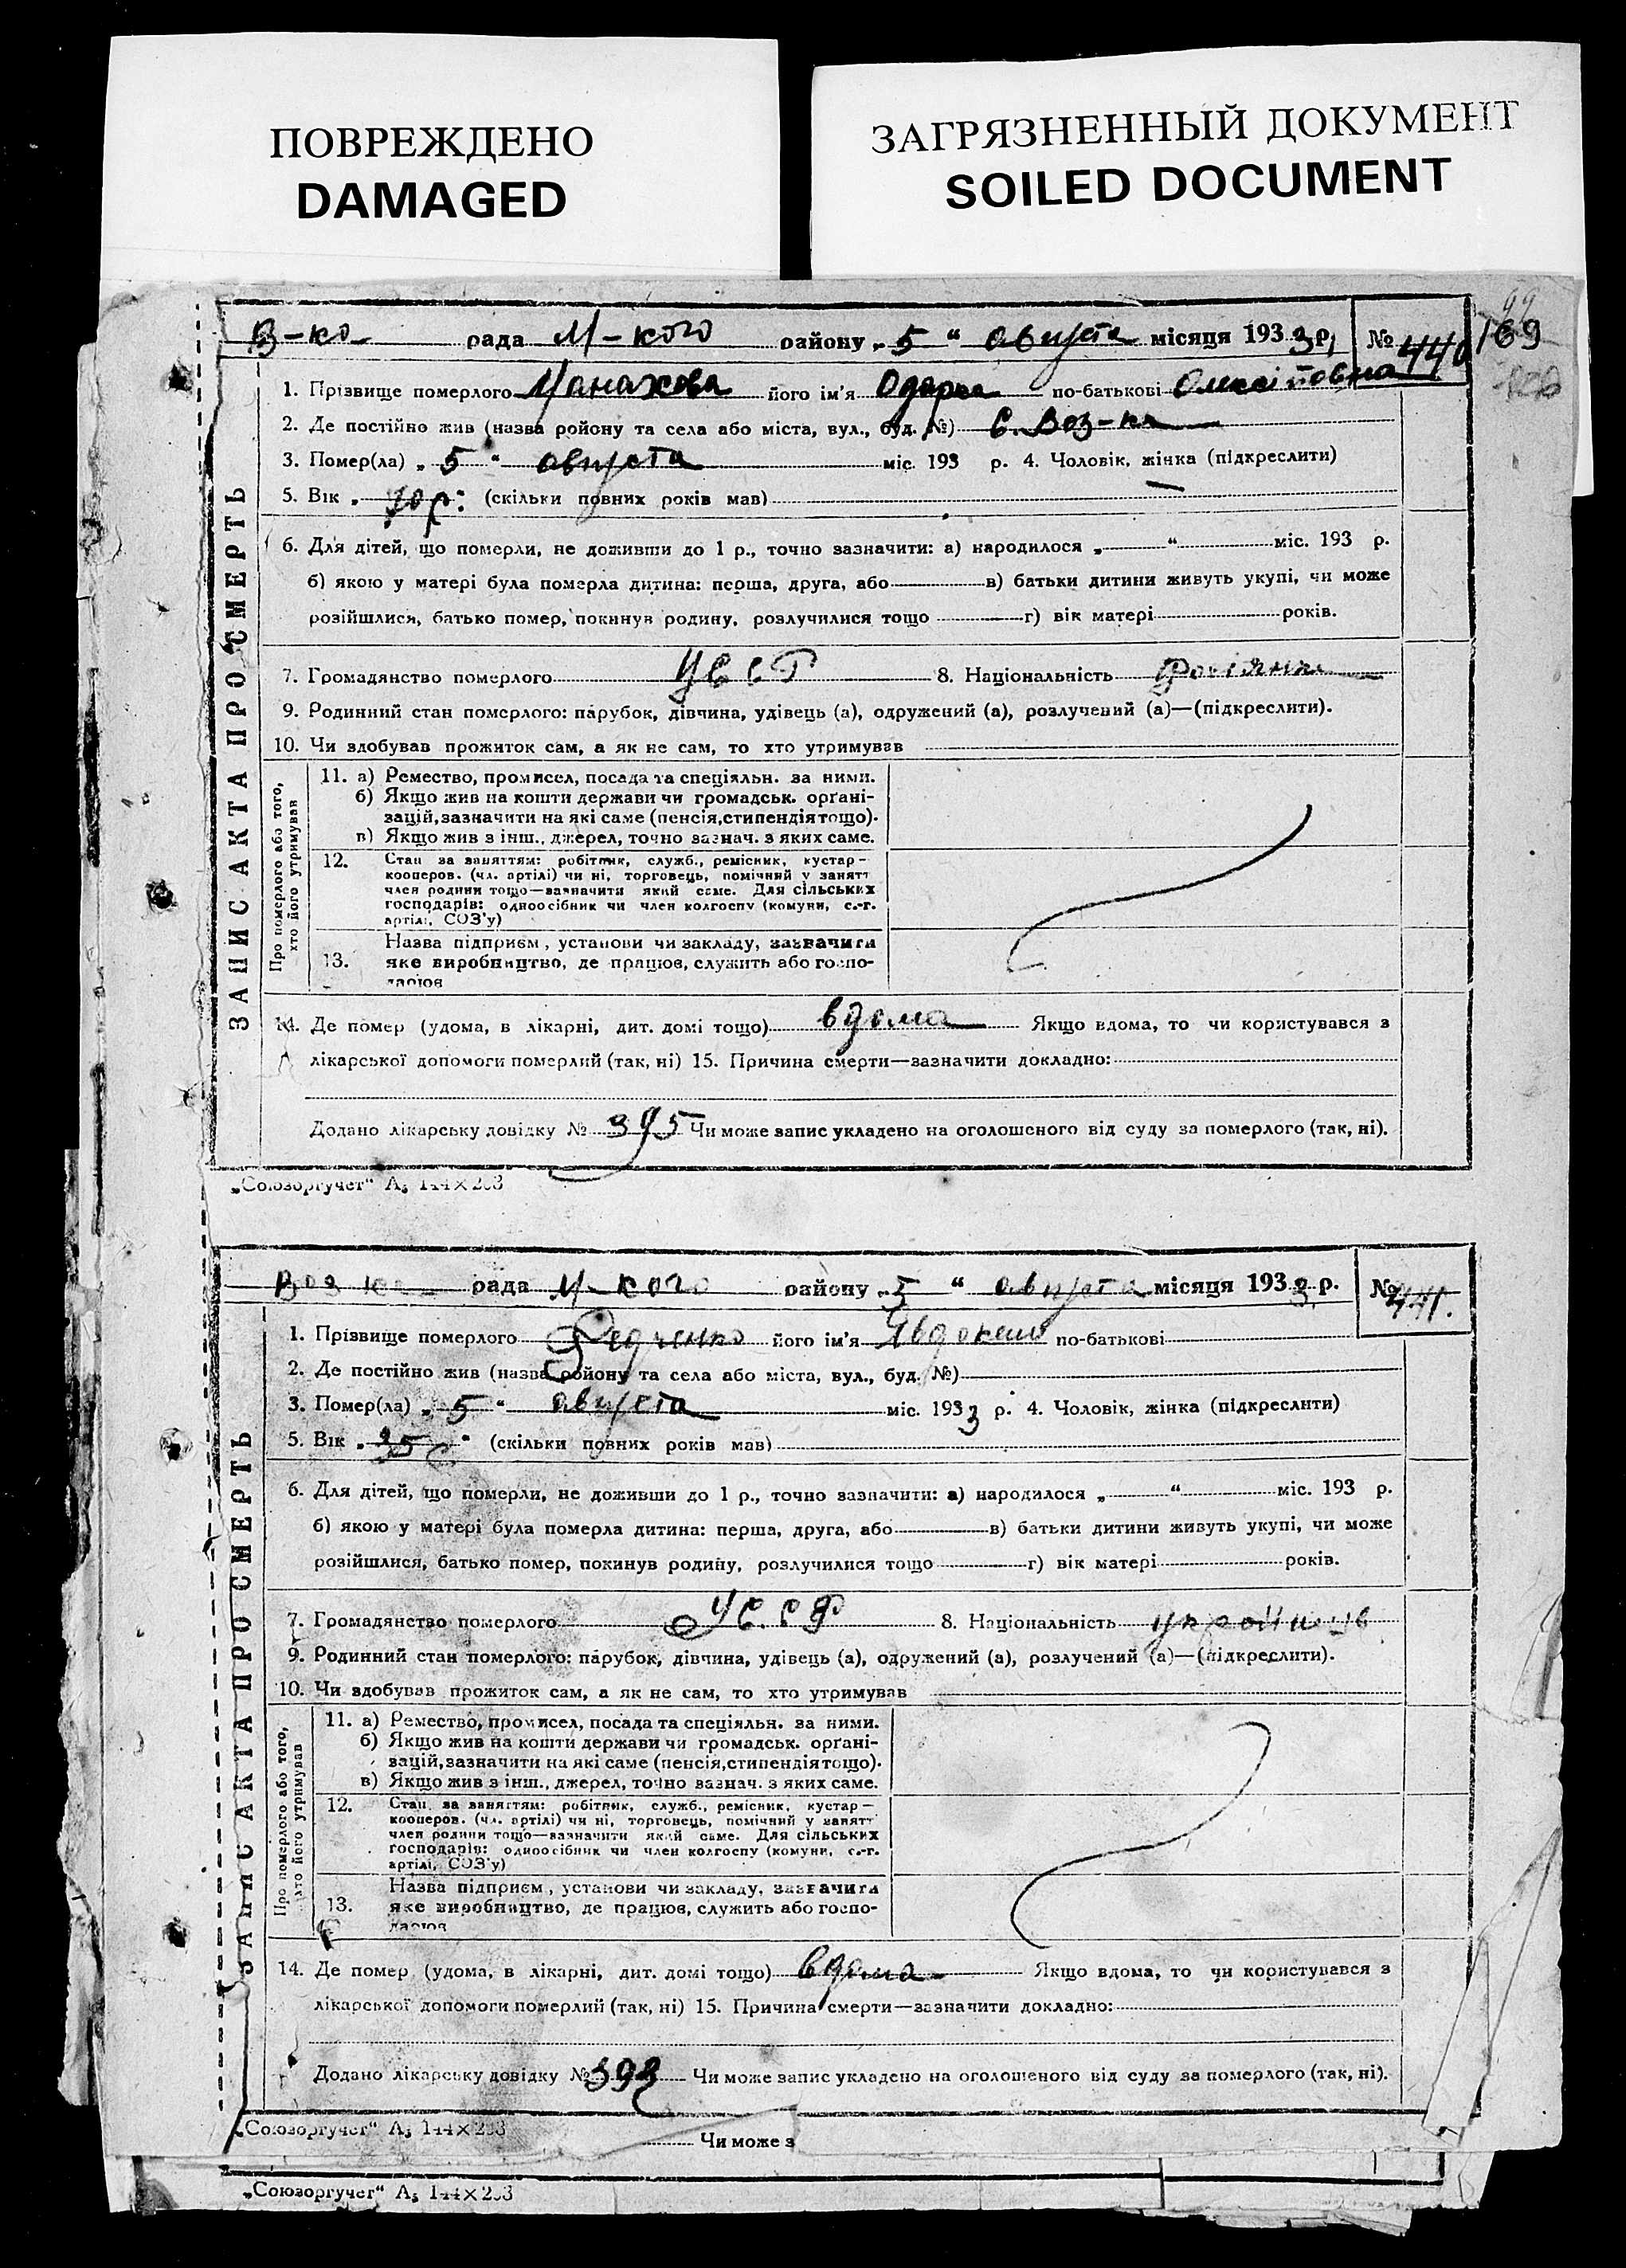 ПОВРЕЖДЕНО
DAMAGED
ЗАГРЯЗНЕННЫЙ ДОКУМЕНТ
SOILED DOCUMENT
169
В-ко рада М-кого району „ 5 “ августа місяця 1933 р. № 440
ЗАПИС АКТА ПРО СМЕРТЬ
1. Прізвище померлого Манахова його ім'я Одарка по-батькові
2. Де постійно жив (назва ройону та села або міста, вул., буд. №) С. Воз-ка
3. Помер(ла) „ 5 “ августа міс. 193 р. 4. Чоловік, жінка (підкреслити)
5. Вік „ (скільки повних років мав)
6. Для дітей, що померли, не доживши до 1 р., точно зазначити: а) народилося „ “ міс. 193 р.
б) якою у матері була померла дитина: перша, друга, або в) батьки дитини живуть укупі, чи може
розійшлися, батько помер, покинув родину, розлучилися тощо г) вік матері років.
7. Громадянство померлого УССР 8. Національність
9. Родинний стан померлого: парубок, дівчина, удівець (а), одружений (а), розлучений (а)—(підкреслити).
10. Чи здобував прожиток сам, а як не сам, то хто утримував
Про померлого або того, хто його утримував
11. а) Ремество, промисел, посада та спеціяльн. за ними.
б) Якщо жив на кошти держави чи громадськ. орґані-
зацій, зазначити на які саме (пенсія, стипендія тощо).
в) Якщо жив з інш., джерел, точно зазнач. з яких саме.
12. Стан за заняттям: робітник, служб., ремісник, кустар—
кооперов. (чл. артілі) чи ні, торговець, помічний у занятт
член родини тощо—зазначити який саме. Для сільських
господарів: одноосібник чи член колгоспу (комуни, с.-г.
артілі, СОЗ'у)
Назва підприєм., установи чи закладу, зазначити
13. яке виробництво, де працюв, служить або госпо-
дарюв
14. Де помер (удома, в лікарні, дит. домі тощо) вдома Якщо вдома, то чи користувався з
лікарської допомоги померлий (так, ні) 15. Причина смерти—зазначити докладно:
Додано лікарську довідку № 395 Чи може запис укладено на оголошеного від суду за померлого (так, ні).
„Союзоргучет“ А₅ 144×203
Воз рада М-кого району „ 5 “ августа місяця 1933 р. № 441.
ЗАПИС АКТА ПРО СМЕРТЬ
1. Прізвище померлого його ім'я по-батькові
2. Де постійно жив (назва ройону та села або міста, вул., буд. №)
3. Помер(ла) „ 5 “ августа міс. 1933 р. 4. Чоловік, жінка (підкреслити)
5. Вік „ “ (скільки повних років мав)
6. Для дітей, що померли, не доживши до 1 р., точно зазначити: а) народилося „ “ міс. 193 р.
б) якою у матері була померла дитина: перша, друга, або в) батьки дитини живуть укупі, чи може
розійшлися, батько помер, покинув родину, розлучилися тощо г) вік матері років.
7. Громадянство померлого УССР 8. Національність
9. Родинний стан померлого: парубок, дівчина, удівець (а), одружений (а), розлучений (а)—(підкреслити).
10. Чи здобував прожиток сам, а як не сам, то хто утримував
Про померлого або того, хто його утримував
11. а) Ремество, промисел, посада та спеціяльн. за ними.
б) Якщо жив на кошти держави чи громадськ. орґані-
зацій, зазначити на які саме (пенсія, стипендія тощо).
в) Якщо жив з інш., джерел, точно зазнач. з яких саме.
12. Стан за заняттям: робітник, служб., ремісник, кустар—
кооперов. (чл. артілі) чи ні, торговець, помічний у занятт
член родини тощо—зазначити який саме. Для сільських
господарів: одноосібник чи член колгоспу (комуни, с.-г.
артілі, СОЗ'у)
Назва підприєм., установи чи закладу, зазначити
13. яке виробництво, де працюв, служить або госпо-
дарюв
14. Де помер (удома, в лікарні, дит. домі тощо) вдома Якщо вдома, то чи користувався з
лікарської допомоги померлий (так, ні) 15. Причина смерти—зазначити докладно:
Додано лікарську довідку № Чи може запис укладено на оголошеного від суду за померлого (так, ні).
„Союзоргучет“ А₅ 144×203
Чи може з
„Союзоргучет“ А₅ 144×203